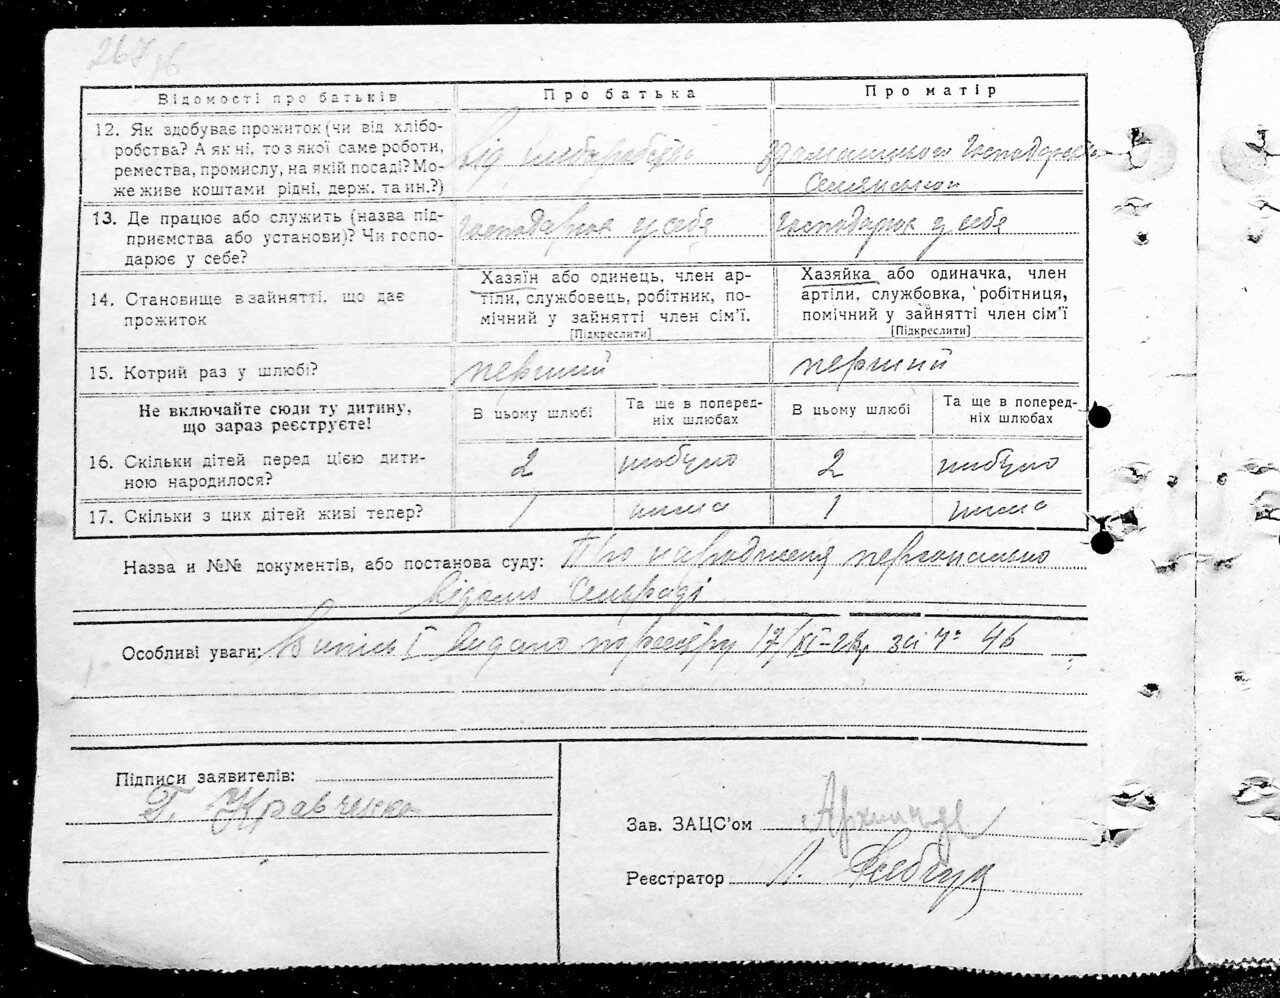 267 зв
Відомості про батьків
Про батька
Про матір
12. Як здобуває прожиток (чи від хлібо-
робства? А як ні, то з якої саме роботи,
ремества, промислу, на якій посаді? Мо-
же живе коштами рідні, держ. та ин.?)
Від хліборобства
домашнього господарства
Селянського
13. Де працює або служить (назва під-
приємства або установи)? Чи госпо-
дарює у себе?
господарює у себе
господарює у себе
14. Становище в зайнятті, що дає
прожиток
Хазяїн або одинець, член ар-
тіли, службовець, робітник, по-
мічний у зайнятті член сім'ї.
[Підкреслити]
Хазяйка або одиначка, член
артіли, службовка, робітниця,
помічний у зайнятті член сім'ї
[Підкреслити]
15. Котрий раз у шлюбі?
перший
перший
Не включайте сюди ту дитину,
що зараз реєструєте!
В цьому шлюбі
Та ще в поперед-
ніх шлюбах
В цьому шлюбі
Та ще в поперед-
ніх шлюбах
16. Скільки дітей перед цією дити-
ною народилося?
2
небуло
2
небуло
17. Скільки з цих дітей живі тепер?
1
нима
1
нима
Назва и №№ документів, або постанова суду: Про народження персонально
відомо Сельраді
Особливі уваги: Випись І видано по реєстру 17/XI-28р за № 46
Підписи заявителів:
Г. Кравченко
Зав. ЗАЦС'ом
Реєстратор Л.